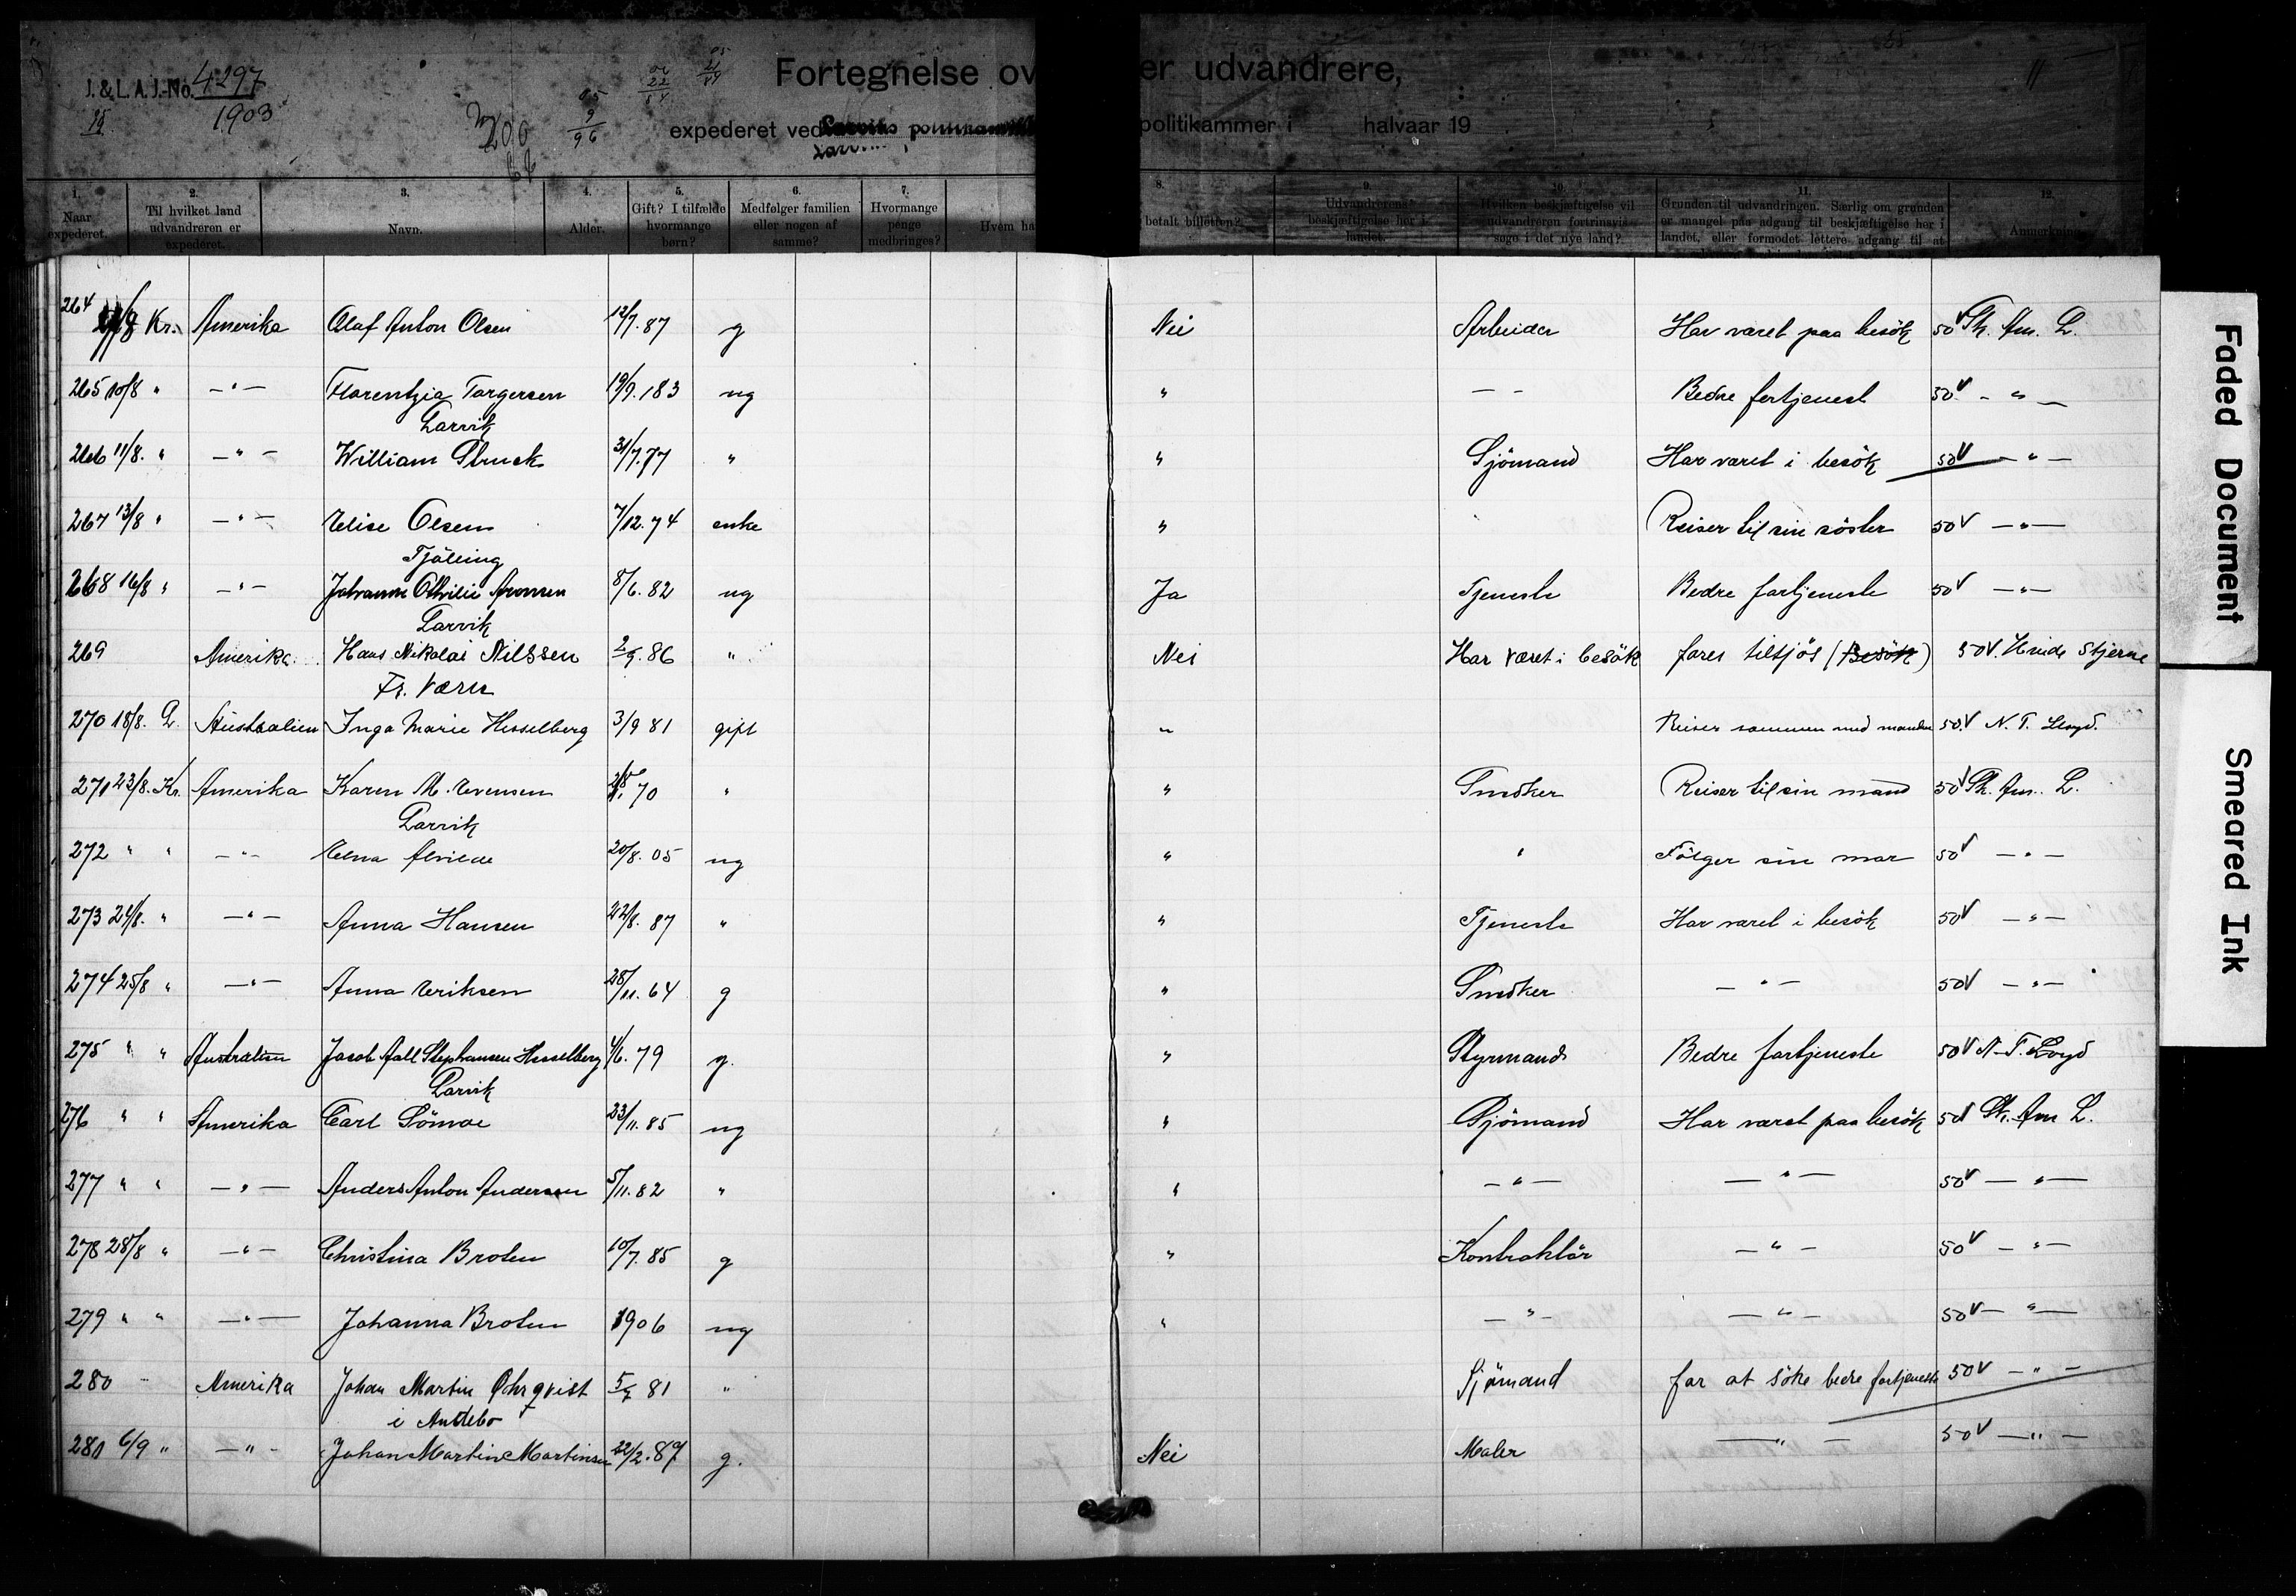 J. & L. A. J.-No. 4297
1903
15
200
05 9 96
Fortegnelse over udvandrere,
expederet ved Larviks politikammer i halvaar 19
1. Naar expederet.
2. Til hvilket land udvandreren er expederet.
3. Navn.
4. Alder.
5. Gift? I tilfælde hvormange børn?
6. Medfølger familien eller nogen af samme?
7. Hvormange penge medbringes?
8. Hvem har betalt billetten?
9. Udvandrerens beskjæftigelse her i landet.
10. Hvilken beskjæftigelse vil udvandreren fortrinsvis søge i det nye land?
11. Grunden til udvandringen. Særlig om grunden er mangel paa adgang til beskjæftigelse her i landet, eller formodet lettere adgang til at
12. Anmerkning
264 /8 Kr. Amerika Olaf Anton Olsen 12/7. 87 g Nei Arbeider Har været paa besök 50 V Sk. Am. L.
265 10/8 " — " — Florentzia Torgersen 19/9. 183 ug " — - Bedre fortjenest 50 V - " —
Larvik
266 11/8. " — " — William Struck 31/7. 77 " " Sjömand Har været i besök 50 V — " —
267 13/8 " — " — Elise Olsen 7/12. 74 enke " Reiser til sin söster 50 V — " —
Tjölling
268 16/8 " — " — Johanne Othilie Aronsen 8/6. 82 ug Ja Tjeneste Bedre fortjeneste 50 V — " —
Larvik
269 Amerika Hans Nikolai Nilssen 2/9. 86 " Nei Har været i besök fares tilsjös (Besök) 50 V. Hvide Stjerne
Fr. Værn
270 18/8. L. Australien Inga Marie Hesselberg 3/9 81 gift " Reiser sammen med manden 50 V N. T. Lloyd.
271 23/8. Kr. Amerika Karen M. Evensen 70 " " Snedker Reiser til sin mand 50 V Sk. Am. L.
Larvik
272 " " — " — Elna Alvilde 20/8. 05 ug " " Fölger sin mor 50 V — " —
273 24/8. " — " — Anna Hansen 22/8. 87 " " Tjeneste Har været i besök 50 V — " —
274 25/8 " — " — Anna Eriksen 28/11. 64 g " Snedker — " — 50 V — " —
275 " " Australien Jacob Aall Stephansen Hesselberg 4/6. 79 g. " Styrmand Bedre fortjeneste 50 V N. T. Loyd
Larvik
276 " " Amerika Carl Sömoe 23/11. 85 ug " Sjömand Har været paa besök 50 V Sk. Am L.
277 " " — " — Anders Anton Andersen 5/11. 82 " " — " — — " — 50 V — " —
278 28/8 " — " — Christina Broten 10/7. 85 g " Kontraktör — " — 50 V — " —
279 " " — " — Johanna Broten 1906 ug " — " — — " — 50 V — " —
280 - Amerika Johan Martin Öhrqvist 5/9 81 " Sjömand for at söke bedre fortjeneste 50 V — " —
i Andebo
281 6/9 " — " — Johan Martin Martinsen 22/2. 87 g. Nei Maler — " — 50 V — " —
Faded Document
Smeared Ink